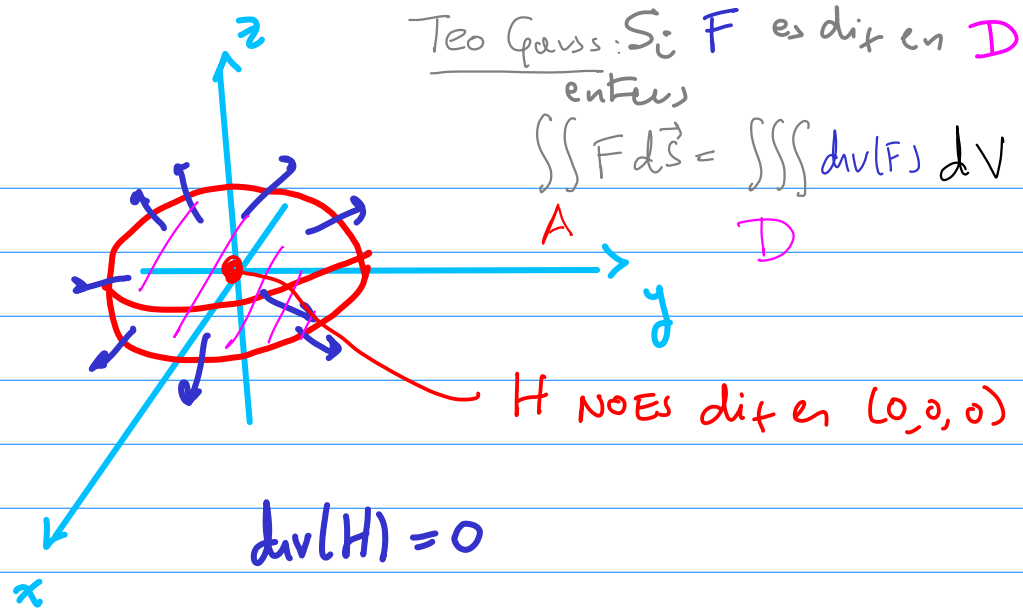 z
Teo Gauss: Si F es dif en D
entces
∬ F dS⃗ = ∭ div(F) dV
A D
y
H NO ES dif en (0,0,0)
div(H) = 0
x